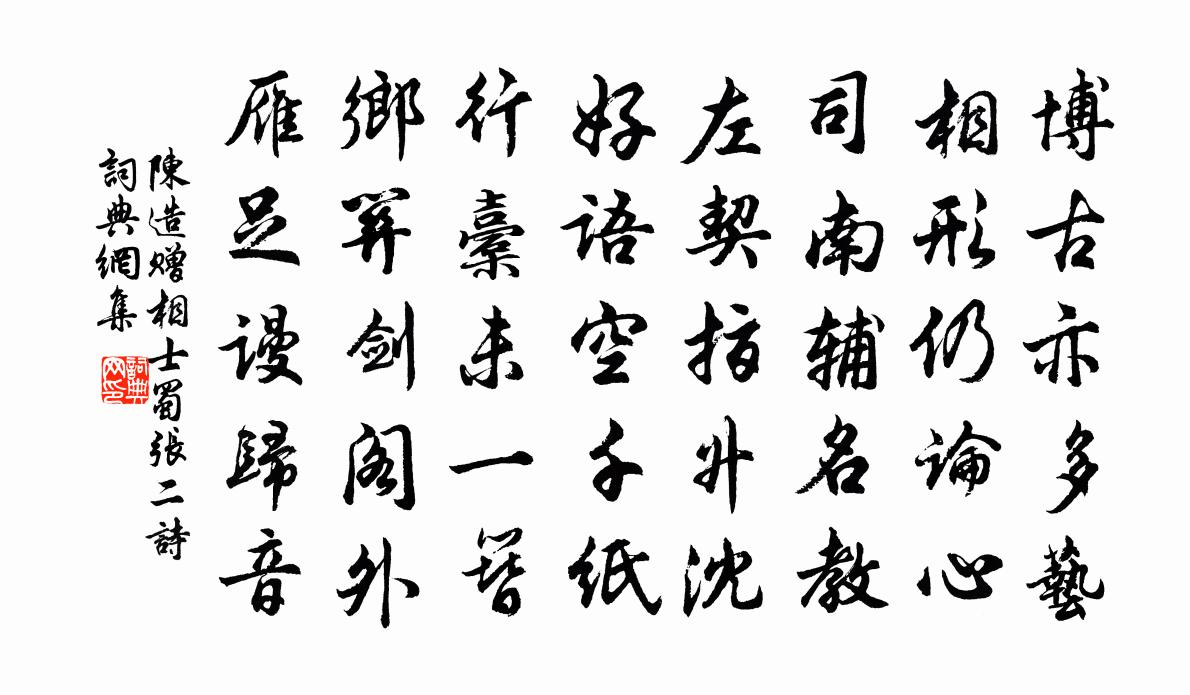 博古亦多藝
相形仍論心
司南輔名教
左契指升沈
好語空千紙
行橐未一簪
鄉關劍閣外
雁足謾歸音
陳造贈相士蜀張二詩
詞典網集
詞典网印